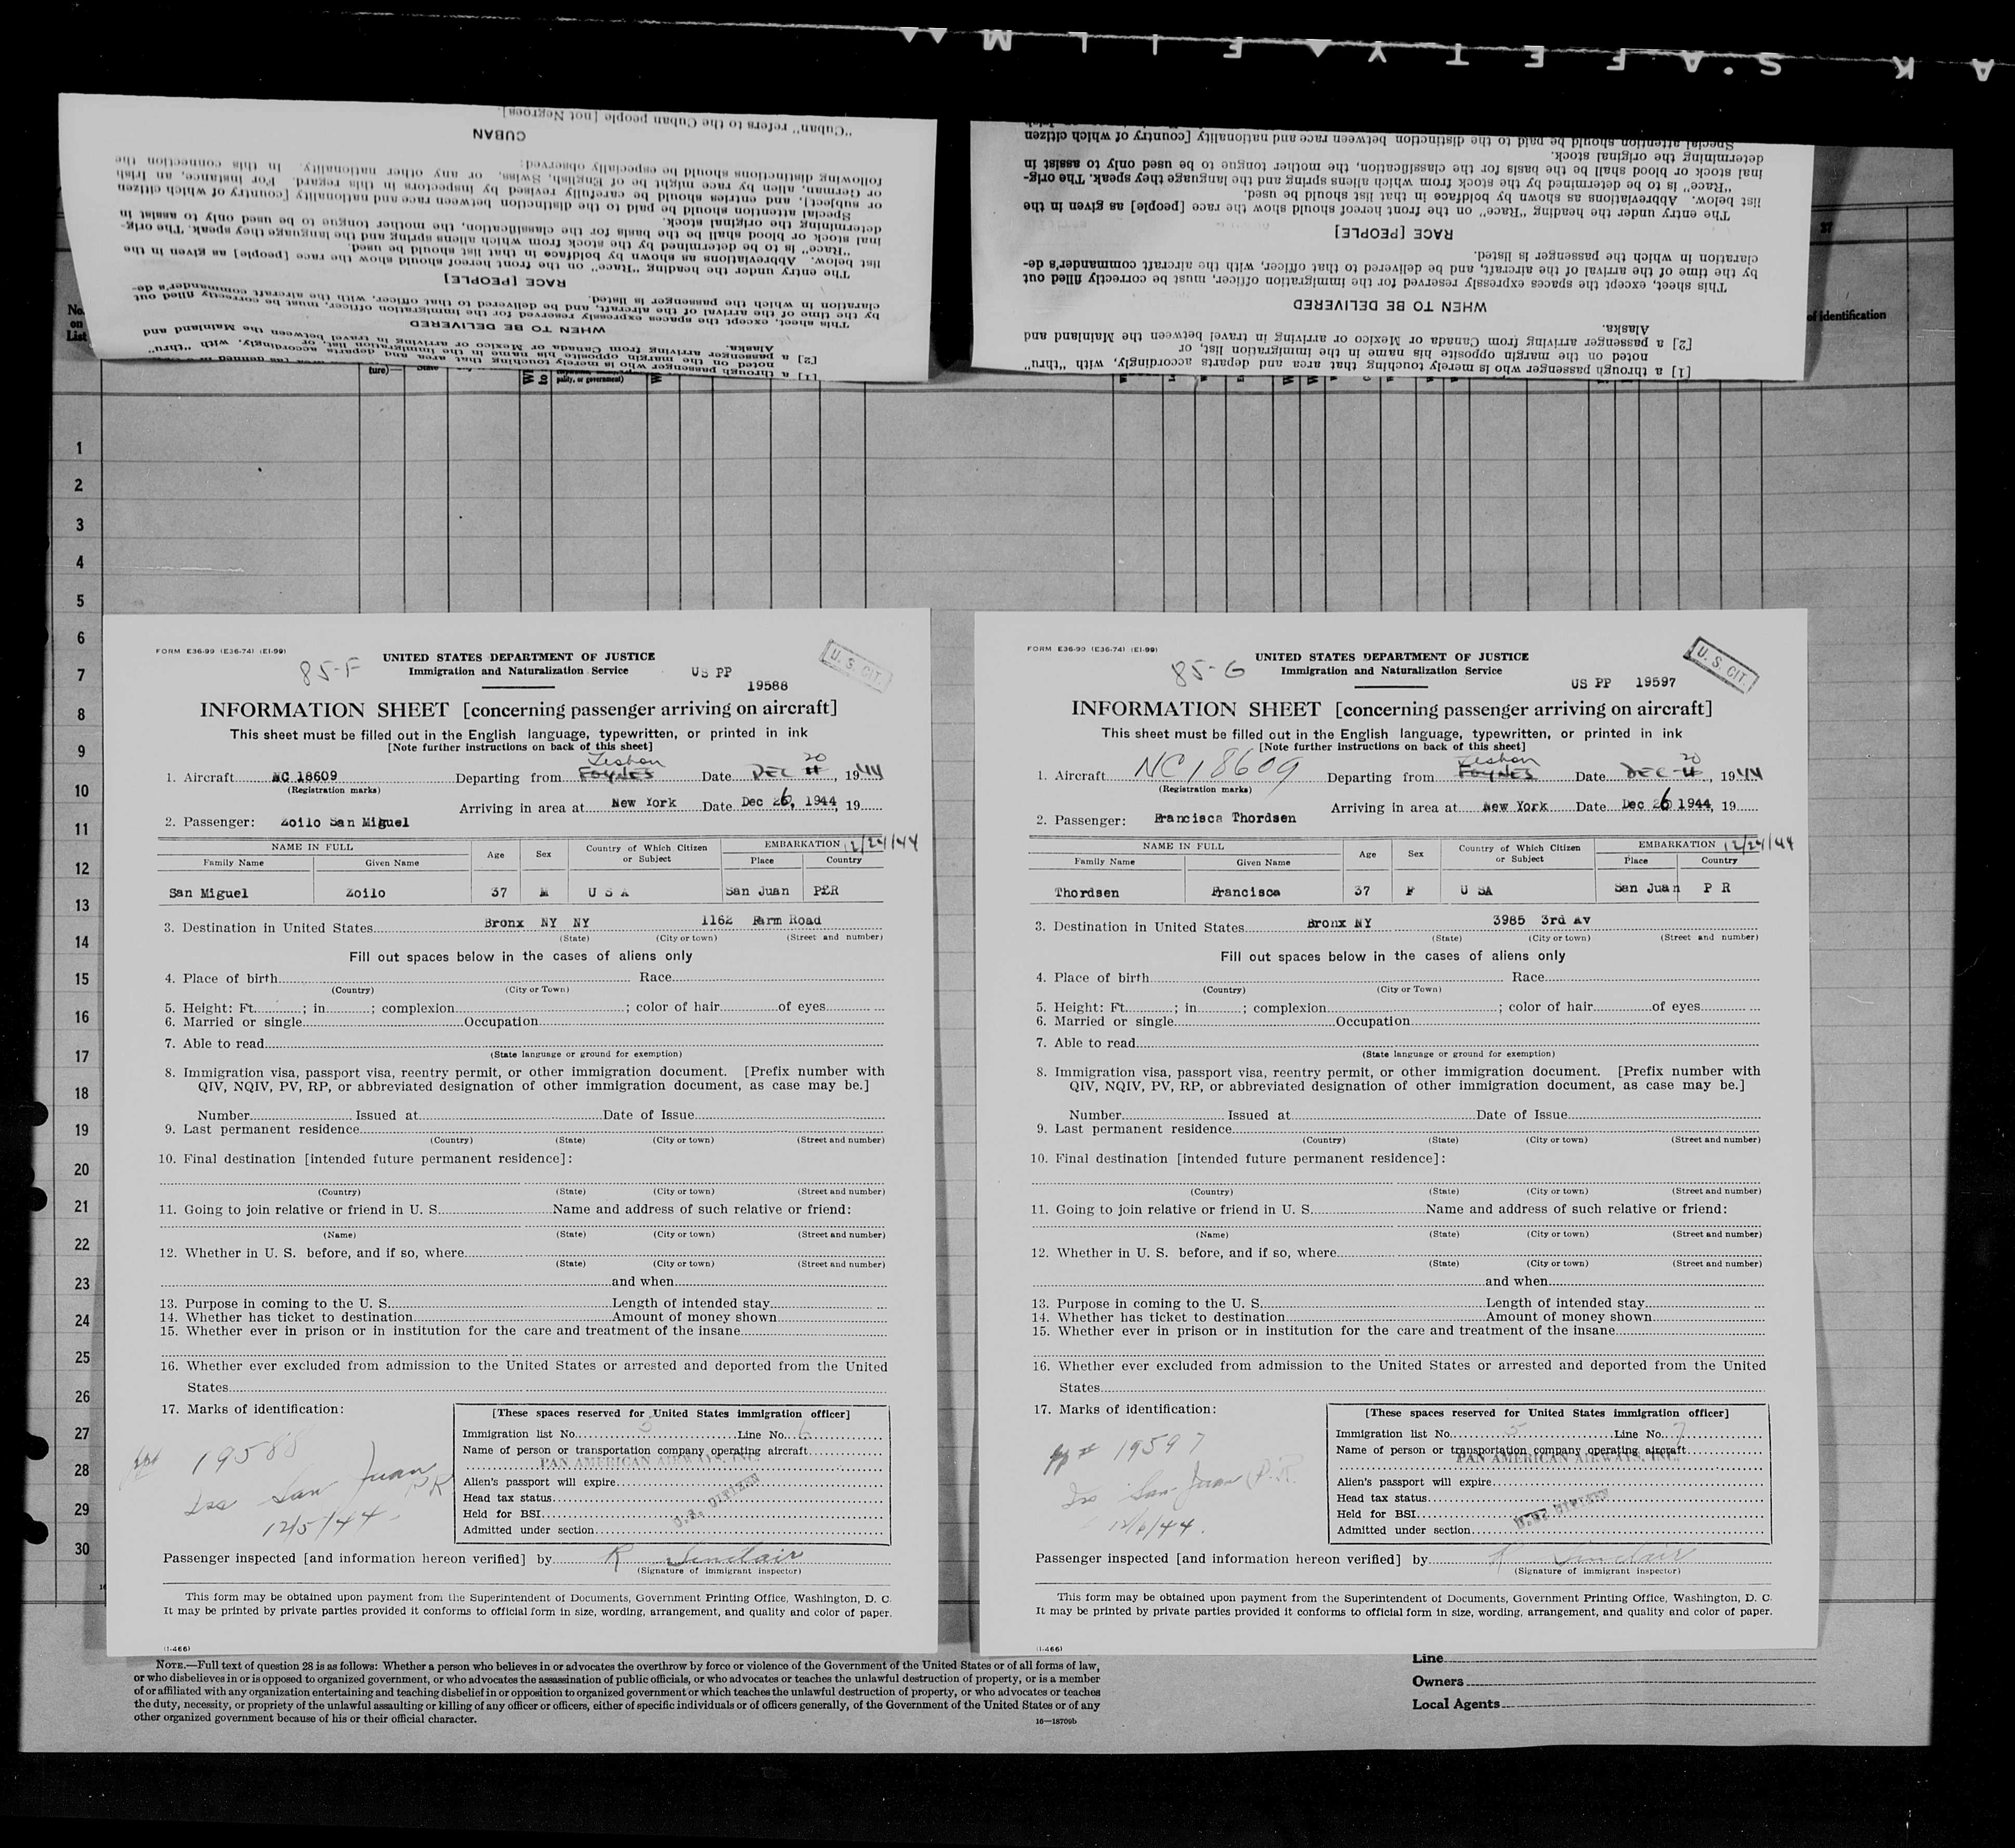 K S.A F E T Y F I L M
"Cuban" refers to the Cuban people [not Negroes].
CUBAN
following distinctions should be especially observed:
or German, alien by race might be of English, Swiss, or any other nationality. In this connection the
or subject], and entries should be carefully revised by inspectors in this regard. For instance, an Irish
Special attention should be paid to the distinction between race and nationality [country of which citizen
determining the original stock.
inal stock or blood shall be the basis for the classification, the mother tongue to be used only to assist in
"Race" is to be determined by the stock from which aliens spring and the language they speak. The orig-
list below. Abbreviations as shown by boldface in that list should be used.
The entry under the heading "Race" on the front hereof should show the race [people] as given in the
RACE [PEOPLE]
claration in which the passenger is listed.
by the time of the arrival of the aircraft, and be delivered to that officer, with the aircraft commander's de-
This sheet, except the spaces expressly reserved for the immigration officer, must be correctly filled out
WHEN TO BE DELIVERED
Alaska.
[2] a passenger arriving from Canada or Mexico or arriving in travel between the Mainland and
noted on the margin opposite his name in the immigration list, or
[1] a through passenger who is merely touching that area and departs accordingly, with "thru"
Special attention should be paid to the distinction between race and nationality [country of which citizen
determining the original stock.
inal stock or blood shall be the basis for the classification, the mother tongue to be used only to assist in
"Race" is to be determined by the stock from which aliens spring and the language they speak. The orig-
list below. Abbreviations as shown by boldface in that list should be used.
The entry under the heading "Race" on the front hereof should show the race [people] as given in the
RACE [PEOPLE]
claration in which the passenger is listed.
by the time of the arrival of the aircraft, and be delivered to that officer, with the aircraft commander's de-
This sheet, except the spaces expressly reserved for the immigration officer, must be correctly filled out
WHEN TO BE DELIVERED
Alaska.
[2] a passenger arriving from Canada or Mexico or arriving in travel between the Mainland and
noted on the margin opposite his name in the immigration list, or
[1] a through passenger who is merely touching that area and departs accordingly, with "thru"
37
of identification
No.
on
List
ture)—
pality, or government)
1
2
3
4
5
6
7
8
9
10
11
12
13
14
15
16
17
18
19
20
21
22
23
24
25
26
27
28
29
30
FORM E36-99 (E36-74) (EI-99)
85-F
UNITED STATES DEPARTMENT OF JUSTICE
Immigration and Naturalization Service
US PP
19588
U. S. CIT.
INFORMATION SHEET [concerning passenger arriving on aircraft]
This sheet must be filled out in the English language, typewritten, or printed in ink
[Note further instructions on back of this sheet]
Lisbon 20
1. Aircraft NC 18609 Departing from FOYNES Date DEC 11, 1944
(Registration marks)
Arriving in area at New York Date Dec 26, 1944, 19
2. Passenger: Zoilo San Miguel
NAME IN FULL Age Sex Country of Which Citizen or Subject EMBARKATION 12/24/44
Family Name Given Name Place Country
San Miguel Zoilo 37 M U S A San Juan PER
3. Destination in United States Bronx NY NY 1162 Farm Road
(State) (City or town) (Street and number)
Fill out spaces below in the cases of aliens only
4. Place of birth Race
(Country) (City or Town)
5. Height: Ft. ; in ; complexion ; color of hair of eyes
6. Married or single Occupation
7. Able to read
(State language or ground for exemption)
8. Immigration visa, passport visa, reentry permit, or other immigration document. [Prefix number with
QIV, NQIV, PV, RP, or abbreviated designation of other immigration document, as case may be.]
Number Issued at Date of Issue
9. Last permanent residence
(Country) (State) (City or town) (Street and number)
10. Final destination [intended future permanent residence]:
(Country) (State) (City or town) (Street and number)
11. Going to join relative or friend in U. S. Name and address of such relative or friend:
(Name) (State) (City or town) (Street and number)
12. Whether in U. S. before, and if so, where
(State) (City or town) (Street and number)
and when
13. Purpose in coming to the U. S. Length of intended stay
14. Whether has ticket to destination Amount of money shown
15. Whether ever in prison or in institution for the care and treatment of the insane
16. Whether ever excluded from admission to the United States or arrested and deported from the United
States
17. Marks of identification:
19588
Iss San Juan PR
12/5/44
[These spaces reserved for United States immigration officer]
Immigration list No. 5 Line No. 6
Name of person or transportation company operating aircraft
PAN AMERICAN AIRWAYS, INC.
Alien's passport will expire
Head tax status
Held for BSI
U.S. CITIZEN
Admitted under section
Passenger inspected [and information hereon verified] by R Sinclair
(Signature of immigrant inspector)
This form may be obtained upon payment from the Superintendent of Documents, Government Printing Office, Washington, D. C.
It may be printed by private parties provided it conforms to official form in size, wording, arrangement, and quality and color of paper.
(I-466)
FORM E36-99 (E36-74) (EI-99)
85-G
UNITED STATES DEPARTMENT OF JUSTICE
Immigration and Naturalization Service
US PP 19597
U. S. CIT.
INFORMATION SHEET [concerning passenger arriving on aircraft]
This sheet must be filled out in the English language, typewritten, or printed in ink
[Note further instructions on back of this sheet]
Lisbon 20
1. Aircraft NC18609 Departing from FOYNES Date DEC 11, 1944
(Registration marks)
Arriving in area at New York Date Dec 26 1944, 19
2. Passenger: Francisca Thordsen
NAME IN FULL Age Sex Country of Which Citizen or Subject EMBARKATION 12/24/44
Family Name Given Name Place Country
Thordsen Francisca 37 F U SA San Juan P R
3. Destination in United States Bronx NY 3985 3rd Av
(State) (City or town) (Street and number)
Fill out spaces below in the cases of aliens only
4. Place of birth Race
(Country) (City or Town)
5. Height: Ft. ; in ; complexion ; color of hair of eyes
6. Married or single Occupation
7. Able to read
(State language or ground for exemption)
8. Immigration visa, passport visa, reentry permit, or other immigration document. [Prefix number with
QIV, NQIV, PV, RP, or abbreviated designation of other immigration document, as case may be.]
Number Issued at Date of Issue
9. Last permanent residence
(Country) (State) (City or town) (Street and number)
10. Final destination [intended future permanent residence]:
(Country) (State) (City or town) (Street and number)
11. Going to join relative or friend in U. S. Name and address of such relative or friend:
(Name) (State) (City or town) (Street and number)
12. Whether in U. S. before, and if so, where
(State) (City or town) (Street and number)
and when
13. Purpose in coming to the U. S. Length of intended stay
14. Whether has ticket to destination Amount of money shown
15. Whether ever in prison or in institution for the care and treatment of the insane
16. Whether ever excluded from admission to the United States or arrested and deported from the United
States
17. Marks of identification:
pp # 19597
Iss San Juan P.R.
12/6/44.
[These spaces reserved for United States immigration officer]
Immigration list No. 5 Line No. 7
Name of person or transportation company operating aircraft
PAN AMERICAN AIRWAYS, INC.
Alien's passport will expire
Head tax status
Held for BSI U.S. CITIZEN
Admitted under section
Passenger inspected [and information hereon verified] by R Sinclair
(Signature of immigrant inspector)
This form may be obtained upon payment from the Superintendent of Documents, Government Printing Office, Washington, D. C.
It may be printed by private parties provided it conforms to official form in size, wording, arrangement, and quality and color of paper.
(I-466)
NOTE.—Full text of question 28 is as follows: Whether a person who believes in or advocates the overthrow by force or violence of the Government of the United States or of all forms of law,
or who disbelieves in or is opposed to organized government, or who advocates the assassination of public officials, or who advocates or teaches the unlawful destruction of property, or is a member
of or affiliated with any organization entertaining and teaching disbelief in or opposition to organized government or which teaches the unlawful destruction of property, or who advocates or teaches
the duty, necessity, or propriety of the unlawful assaulting or killing of any officer or officers, either of specific individuals or of officers generally, of the Government of the United States or of any
other organized government because of his or their official character.
16—18709b
Line
Owners
Local Agents